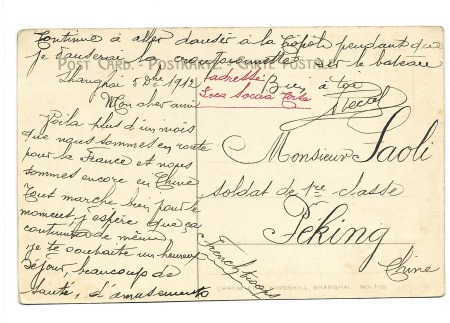 Continue à aller danser à la pendant que
je danserai la sur le bateau
POST CARD. - POSTKARTE. - CARTE POSTALE
Shanghai 5 Dbre 1912
Mon cher ami
Voila plus d'un mois
que nous sommes en route
pour la France et nous
sommes encore en Chine
Tout marche bien pour le
moment, j'espère que ça
continura de même,
je te souhaite un heureux
séjour, beaucoup de
santé, d'amusements
adresse:
Bien à toi
Monsieur Paoli
soldat de 1re classe
Péking
Chine
French troops
SHANGHAI NO. 110